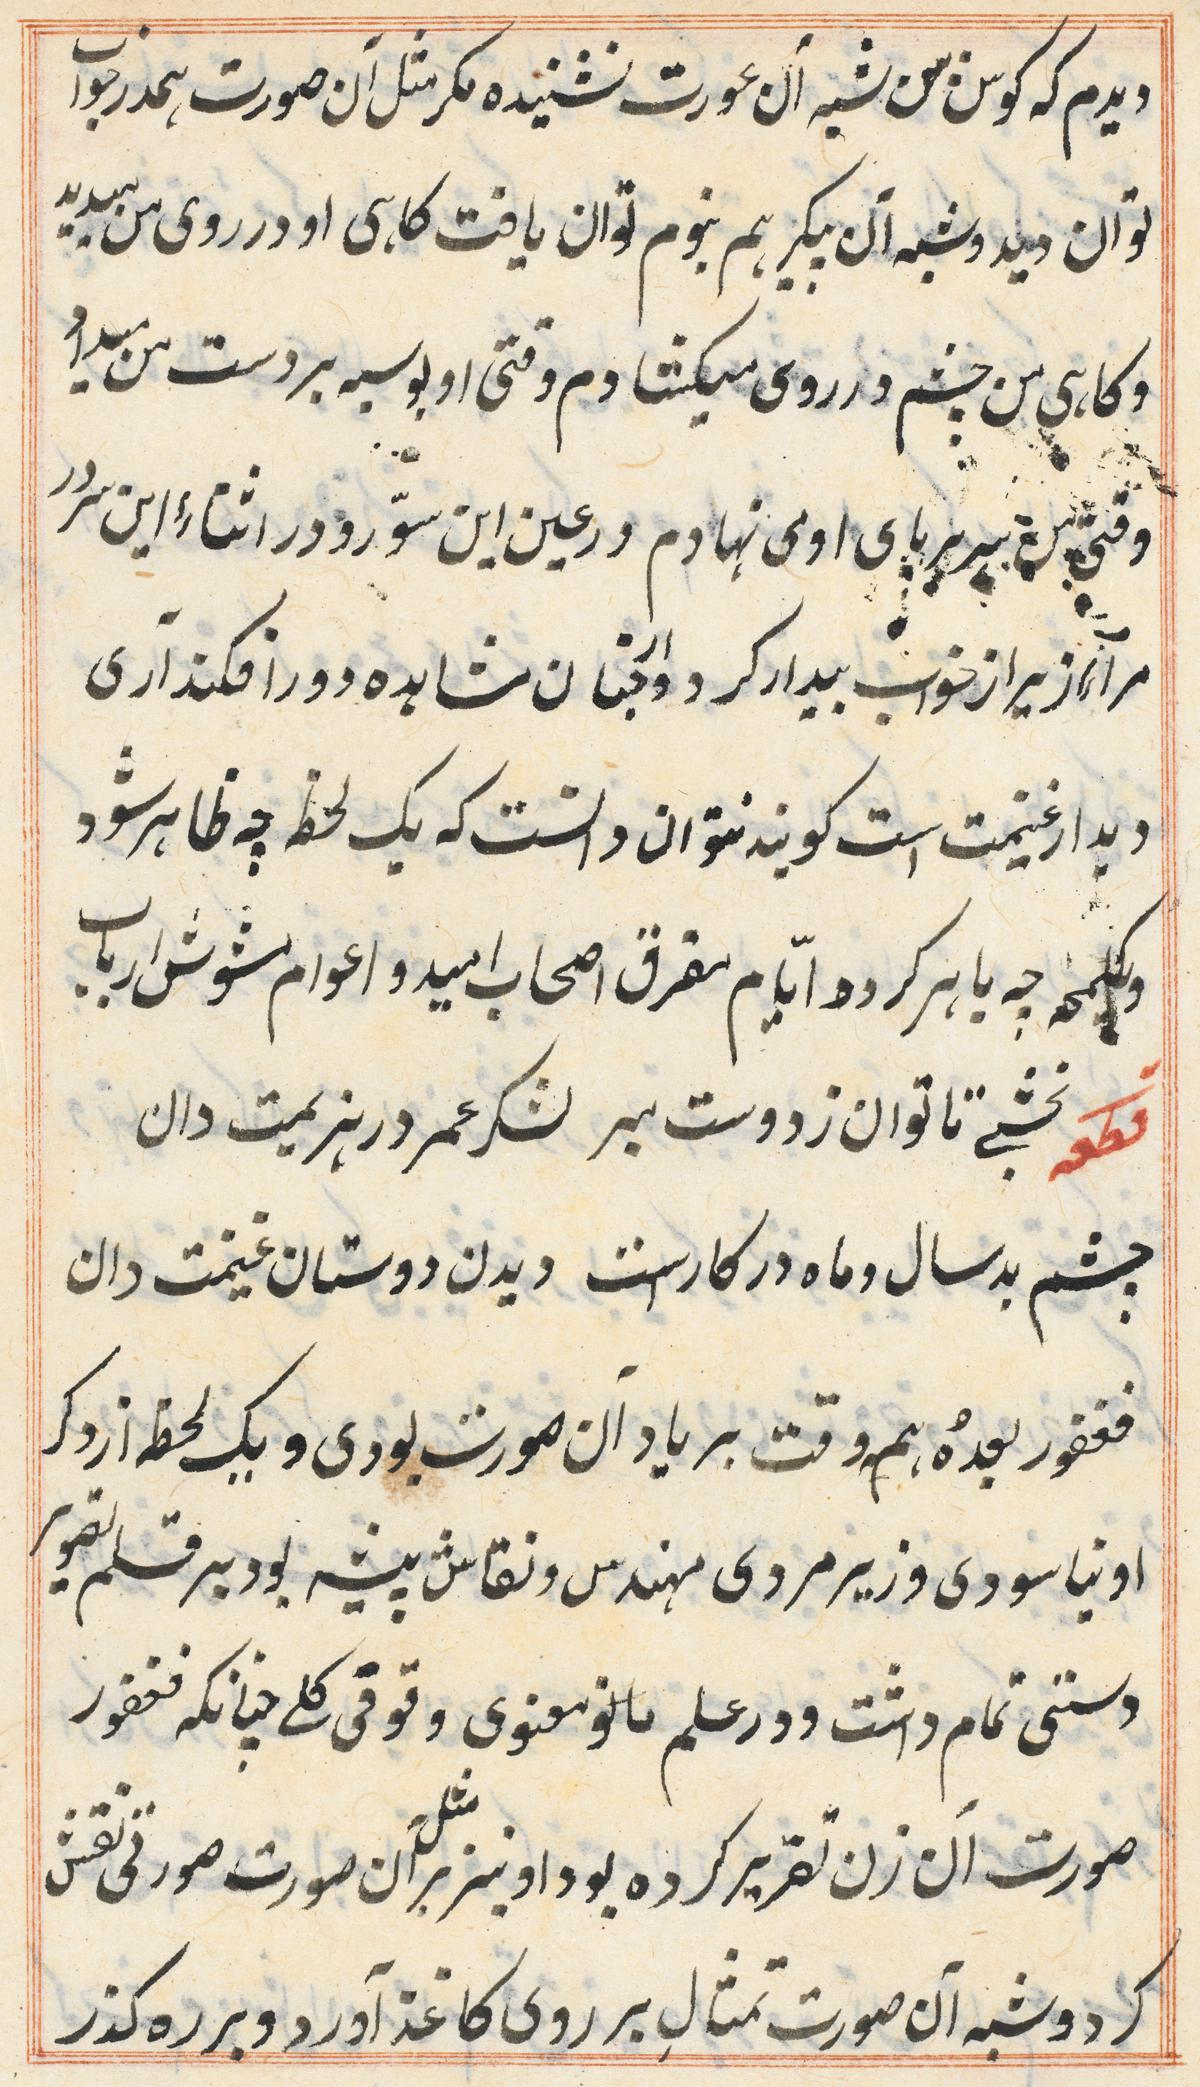 دیدم که کوس من شبه آن عورت نشنیده مکر مثل آن صورت هم در خواب
توان دید و شبه آن پیکر هم بنوم توان یافت کاهی او در روی من میدید
و کاهی من چشم در روی میکشادم وقتی او بوسه بر دست من میداد
وقتی من سر بر پای او می نهادم در عین این سوّر و در اثناء این سرور
مرا آن وزیر از خواب بیدار کرد و از چنان مشاهده دور افکند آری
دیدار غنیمت است کویند نتوان دانست که یک لحظه چه ظاهر شود
و یکلمحه چه باهر کردد ایّام مفرق اصحاب امید و اعوام مشوش ارباب
قطعه نخشبی تا توان ز دوست مبر لشکر عمر در هزیمت دان
چشم بد سال و ماه در کارست دیدن دوستان غنیمت دان
فغفور بعدهُ همه وقت بر یاد آن صورت بودی و یک لحظه از ذکر
او نیاسودی وزیر مردی مهندس و نقاش پیشه بود بر قلم تصویر
دستی تمام داشت و در علم مانو معنوی وقوفی کلی چنانکه فغفور
صورت آن زن تقریر کرده بود او نیز بر مثل آن صورت صورتی نقش
کرد و شبه آن صورت تمثال بر روی کاغذ آورد و بر ره کذر